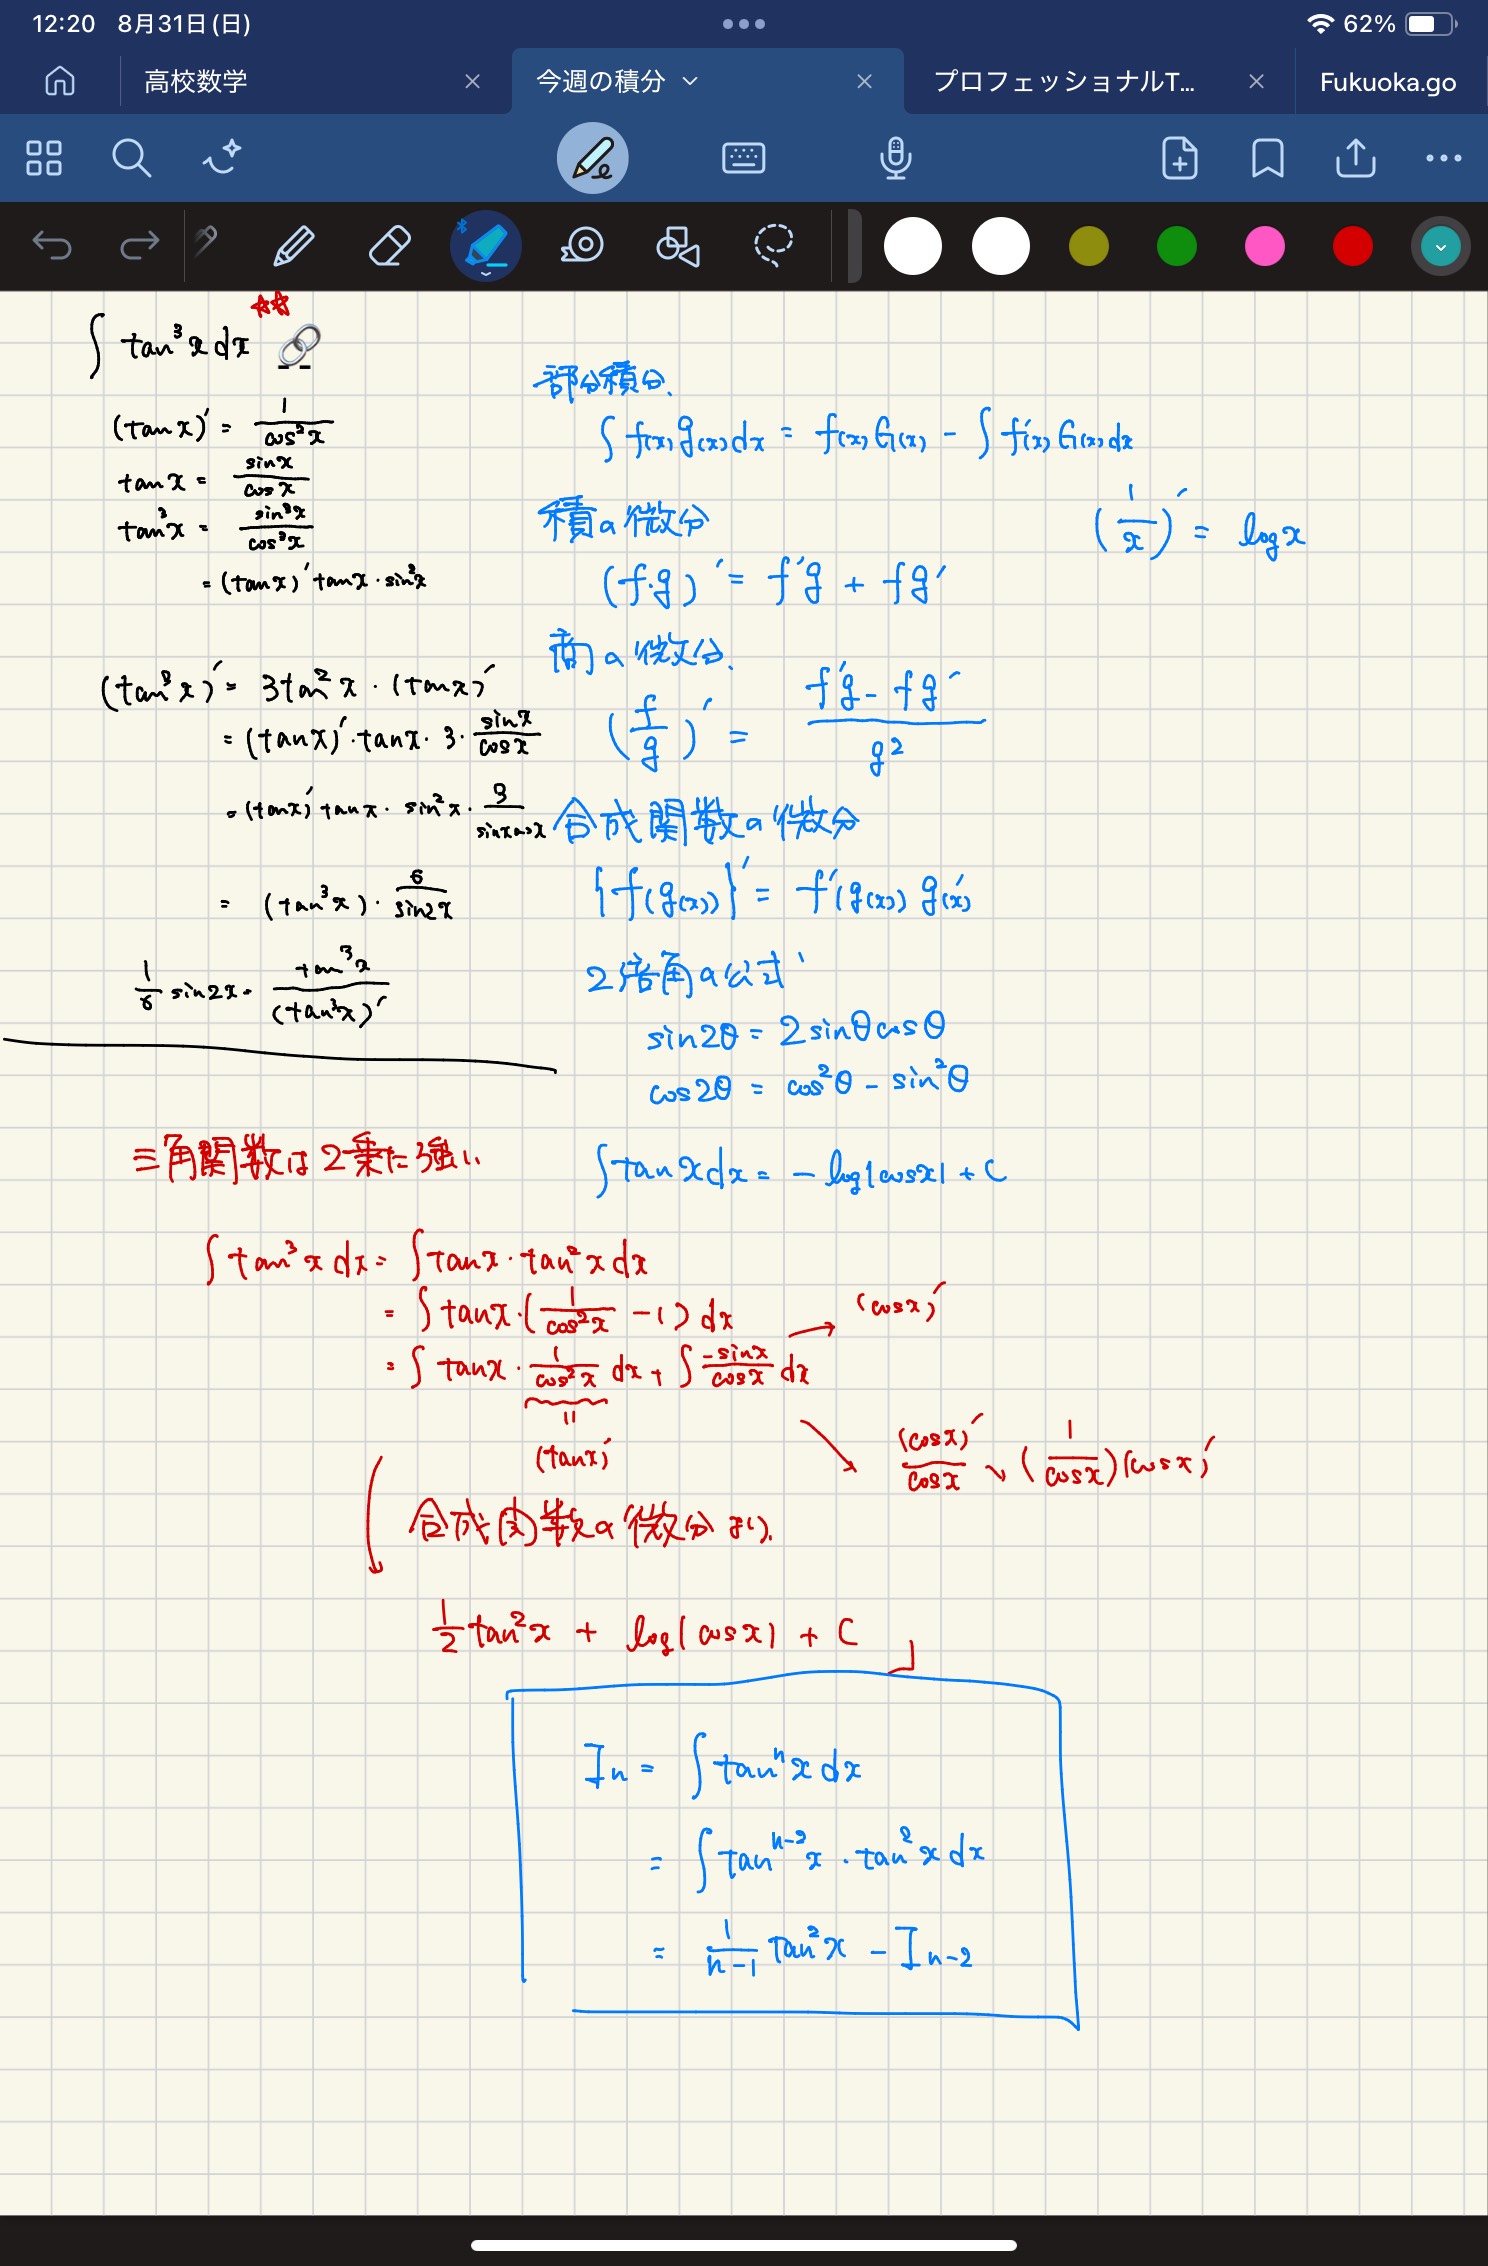 12:20 8月31日(日)
62%
高校数学
今週の積分
プロフェッショナルT...
Fukuoka.go
☆☆
∫ tan³x dx
(tan x)' = 1/cos²x
tan x = sin x/cos x
tan³x = sin³x/cos³x
= (tan x)' tan x · sin²x
(tan³x)' = 3tan²x · (tan x)'
= (tan x)' · tan x · 3 · sin x/cos x
= (tan x)' tan x · sin²x · 3/sin x cos x
= (tan³x) · 6/sin2x
1/6 sin2x = tan³x/(tan³x)'
部分積分.
∫ f(x) g(x) dx = f(x) G(x) - ∫ f'(x) G(x) dx
積の微分
(f·g)' = f'g + fg'
(1/x)' = log x
商の微分.
(f/g)' = f'g - fg'/g²
合成関数の微分
{f(g(x))}' = f'(g(x)) g'(x)
2倍角の公式
sin2θ = 2sinθcosθ
cos2θ = cos²θ - sin²θ
∫ tan x dx = - log|cos x| + C
三角関数は2乗に強い
∫ tan³x dx = ∫ tan x · tan²x dx
= ∫ tan x · (1/cos²x - 1) dx
→ (cos x)'
= ∫ tan x · 1/cos²x dx + ∫ -sin x/cos x dx
=
(tan x)'
(cos x)'/cos x → (1/cos x)(cos x)'
合成関数の微分より.
1/2 tan²x + log|cos x| + C
Iₙ = ∫ tanⁿx dx
= ∫ tanⁿ⁻²x · tan²x dx
= 1/n-1 tan²x - Iₙ₋₂